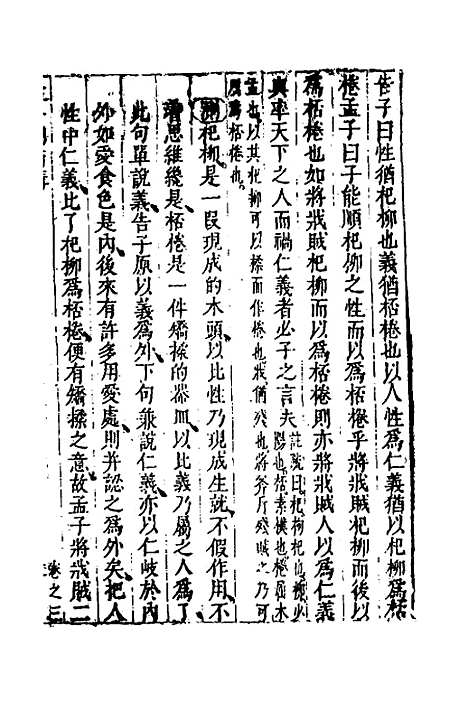 告子曰性猶杞柳也義猶桮棬也以人性爲仁義猶以杞柳爲桮
棬孟子曰子能順杞柳之性而以爲桮棬乎將戕賊杞柳而後以
爲桮棬也如將戕賊杞柳而以爲桮棬則亦將戕賊人以爲仁義
與率天下之人而禍仁義者必子之言夫
註疏曰杞柳杞也柳少
楊也桮素樸也棬屈木
盂也以其杞柳可以楺而作棬也戕猶殘也將斧斤殘賊之乃可
爲桮棬也
杞柳是一段現成的木頭以比性乃現成生就不假作用不
着思維纔是桮棬是一件矯揉的器皿以比義乃屬之人爲了
此句單說義告子原以義爲外下句兼說仁義亦以仁岐於內
外如愛食色是內後來有許多用愛處則并認之爲外矣把人
性中仁義比了杞柳爲桮棬便有矯揉之意故孟子將戕賊二
卷之三